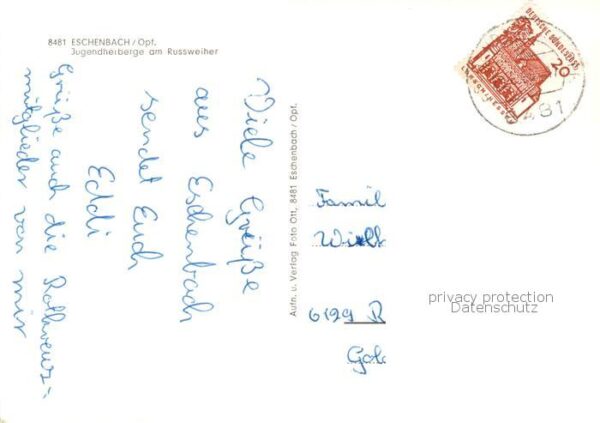 8481 ESCHENBACH / Opf.
Jugendherberge am Russweiher
Viele Grüße
aus Eschenbach
sendet Euch
Eddi
Grüße auch die
mitglieder von mir
Aufn. u. Verlag Foto Ott, 8481 Eschenbach / Opf.
DEUTSCHE BUNDESPOST
20
81
Famil
6129 R
privacy protection
Datenschutz